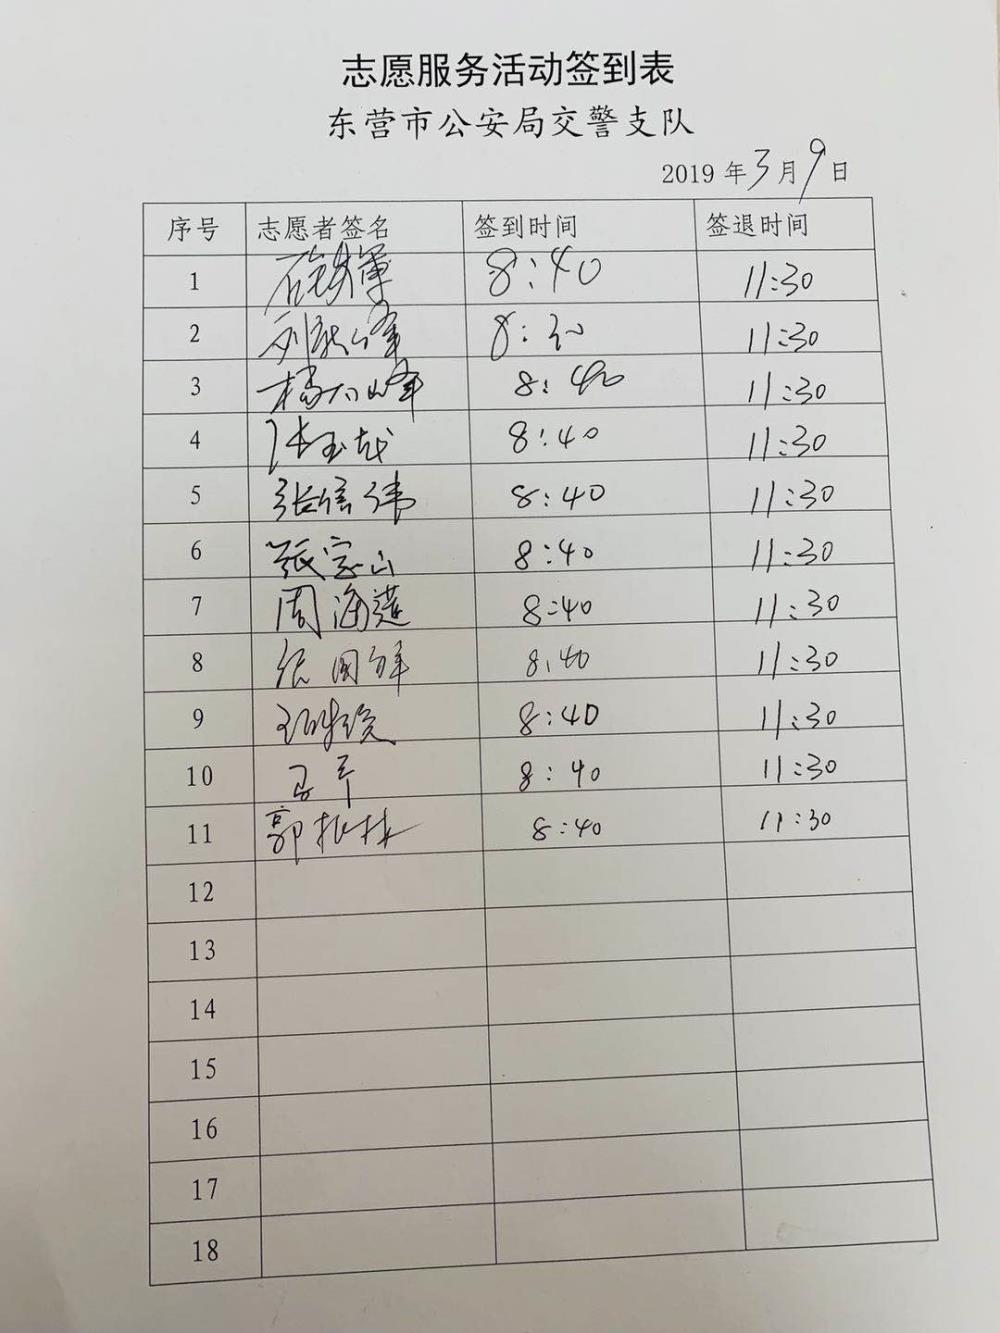 志愿服务活动签到表
东营市公安局交警支队
2019 年 3 月 9 日
序号 志愿者签名 签到时间 签退时间
1 8:40 11:30
2 刘 峰 8:30 11:30
3 杨 峰 8:40 11:30
4 张玉 8:40 11:30
5 张信伟 8:40 11:30
6 张宗山 8:40 11:30
7 周海莲 8:40 11:30
8 张国 8:40 11:30
9 8:40 11:30
10 8:40 11:30
11 郭振林 8:40 11:30
12
13
14
15
16
17
18